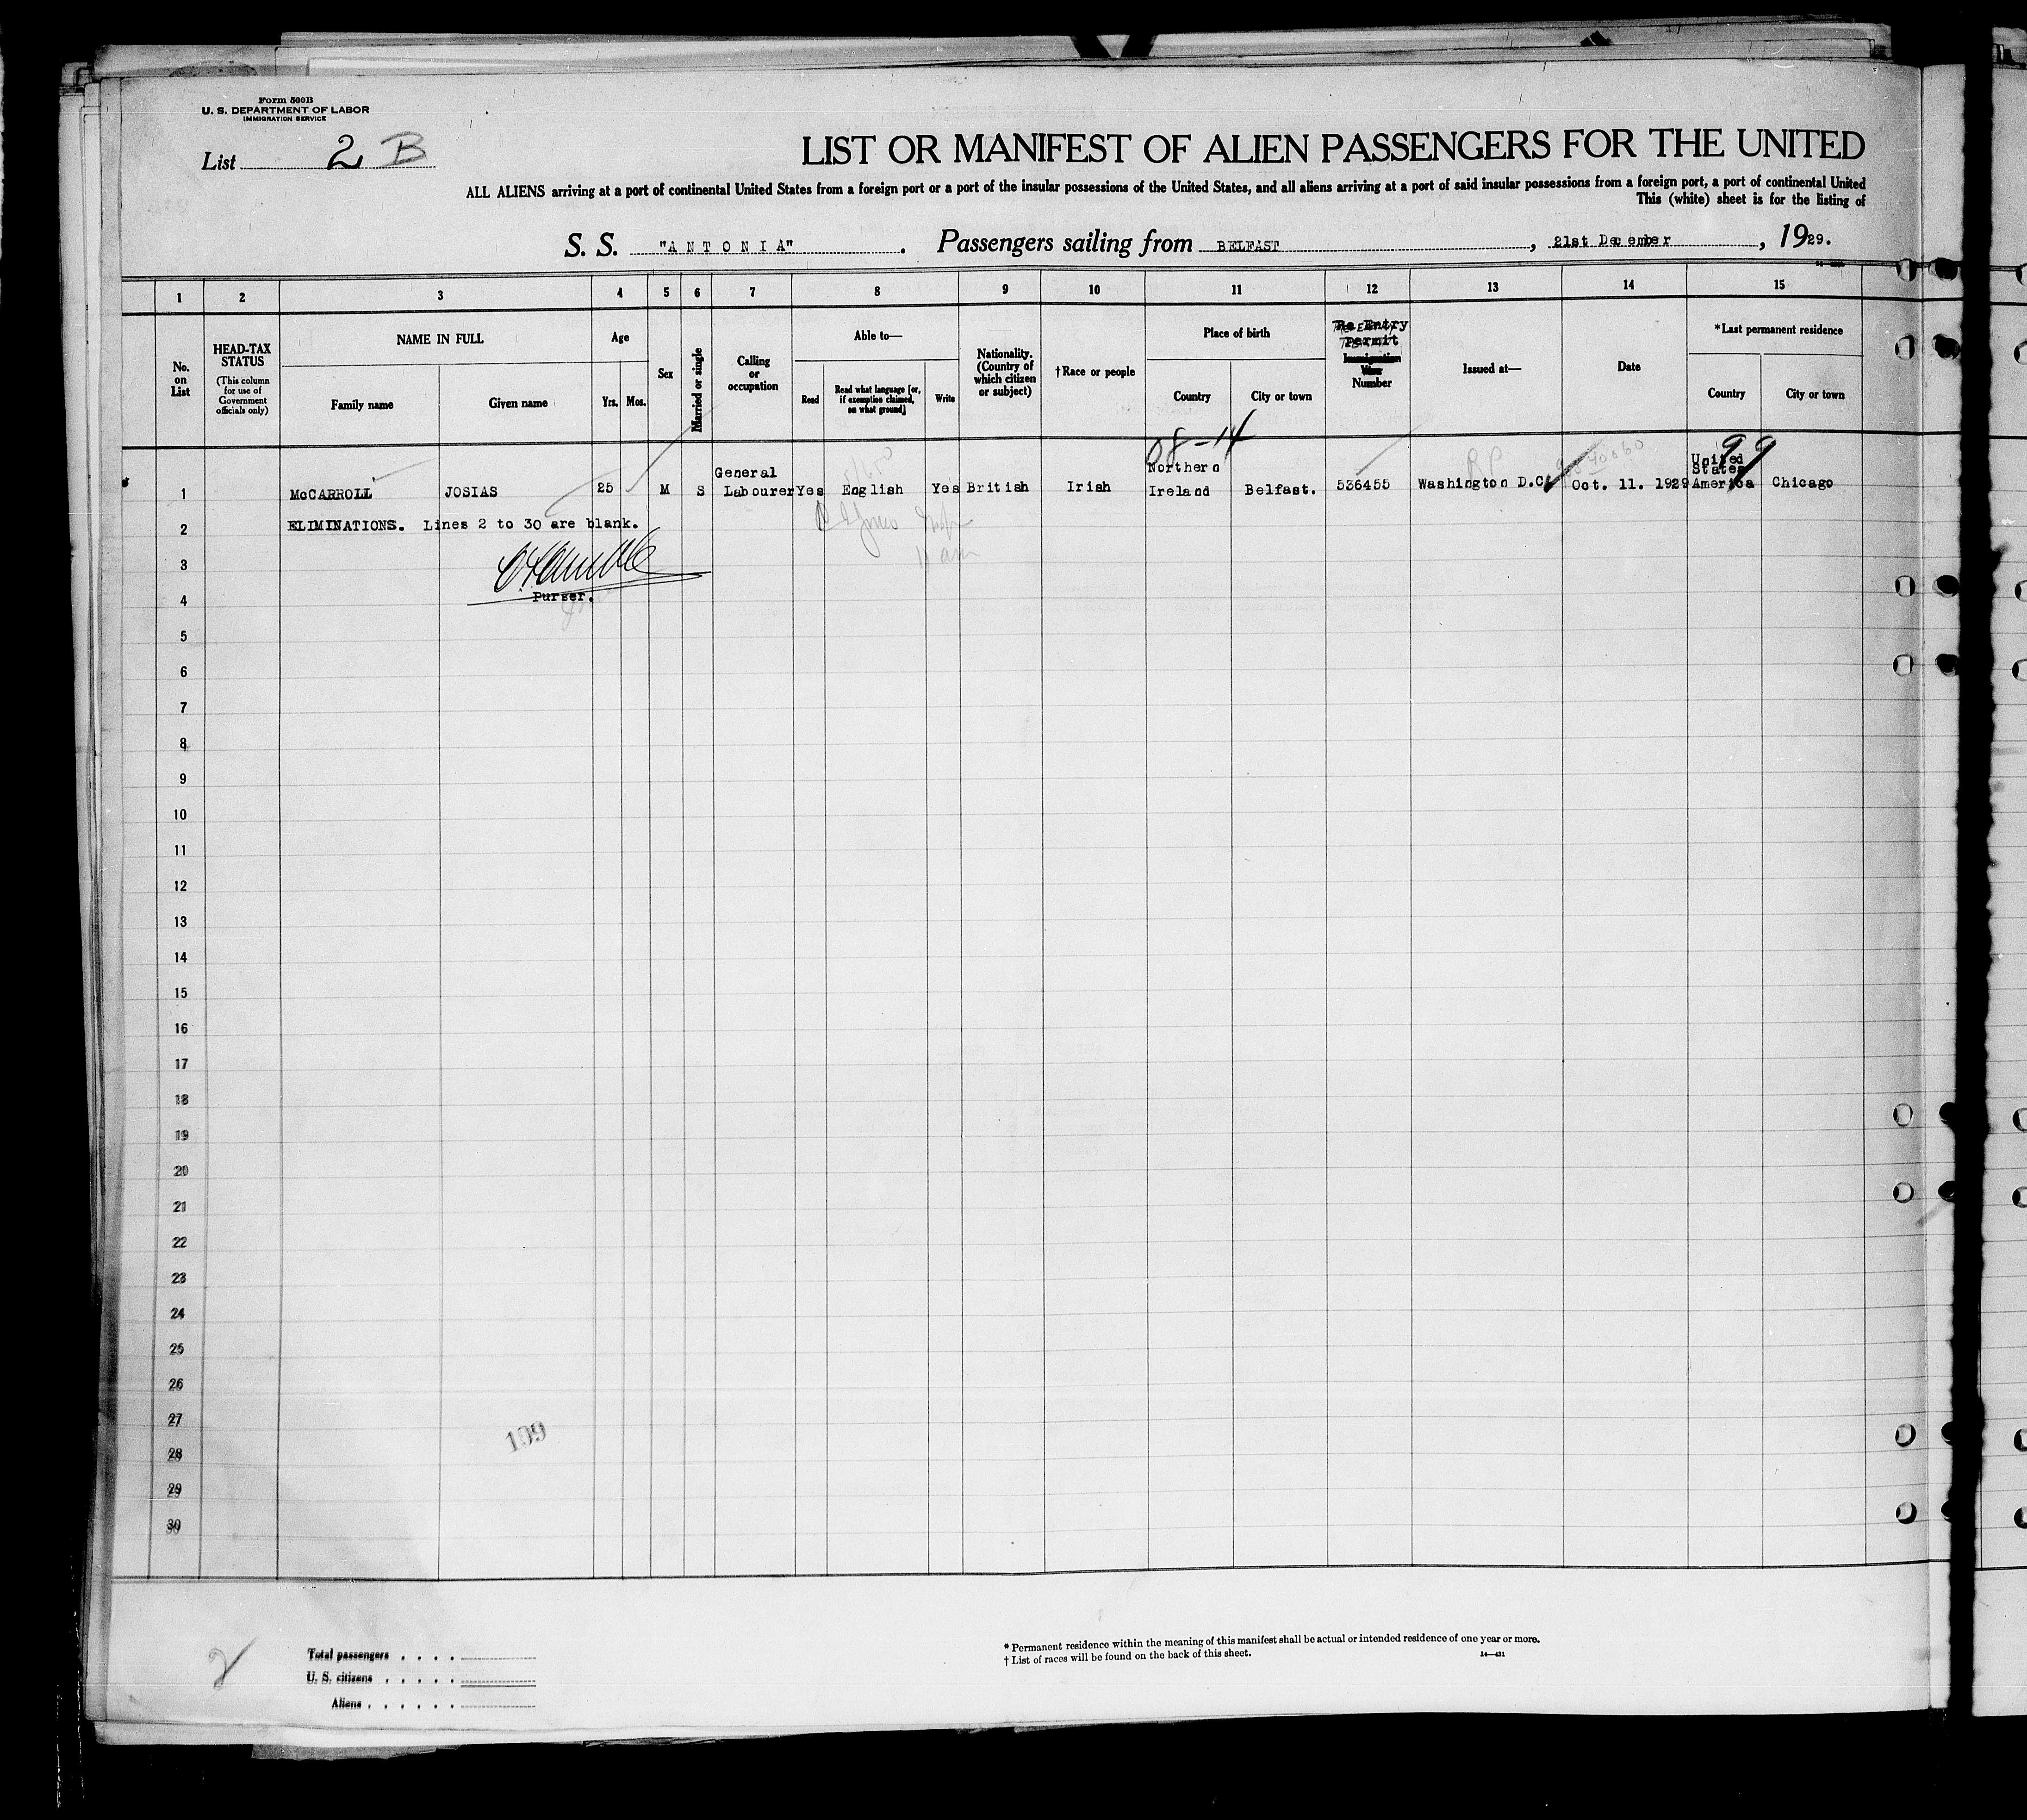 Form 500B
U. S. DEPARTMENT OF LABOR
IMMIGRATION SERVICE
List 2 B
LIST OR MANIFEST OF ALIEN PASSENGERS FOR THE UNITED
ALL ALIENS arriving at a port of continental United States from a foreign port or a port of the insular possessions of the United States, and all aliens arriving at a port of said insular possessions from a foreign port, a port of continental United
This (white) sheet is for the listing of
S. S. "ANTONIA". Passengers sailing from BELFAST, 21st December, 1929.
1 2 3 4 5 6 7 8 9 10 11 12 13 14 15
No. on List
HEAD-TAX STATUS
(This column for use of Government officials only)
NAME IN FULL
Family name
Given name
Age
Yrs. Mos.
Sex
Married or single
Calling or occupation
Able to—
Read
Read what language [or, if exemption claimed, on what ground]
Write
Nationality. (Country of which citizen or subject)
†Race or people
Place of birth
Country
City or town
Re Entry
Permit
Immigration
Visa
Number
Issued at—
Date
*Last permanent residence
Country
City or town
08-14
99
1 McCARROLL JOSIAS 25 M S General Labourer Yes English Yes British Irish Northern Ireland Belfast. 536455 Washington D.C. Oct. 11. 1929 United States America Chicago
2 ELIMINATIONS. Lines 2 to 30 are blank.
3
4 Purser.
5
6
7
8
9
10
11
12
13
14
15
16
17
18
19
20
21
22
23
24
25
26
27
109
28
29
30
2
Total passengers
U. S. citizens
Aliens
* Permanent residence within the meaning of this manifest shall be actual or intended residence of one year or more.
† List of races will be found on the back of this sheet.
14—431